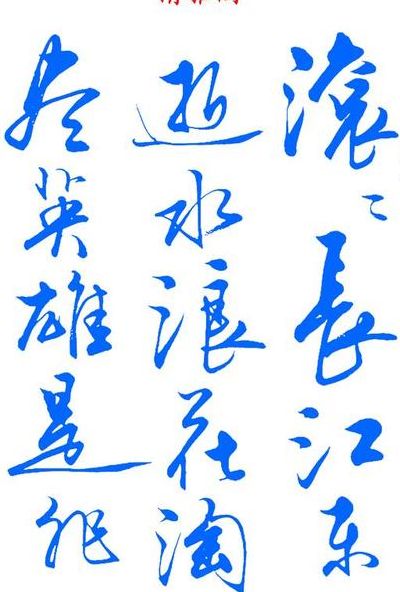 滾〻長江东
逝水浪花淘
尽英雄是非